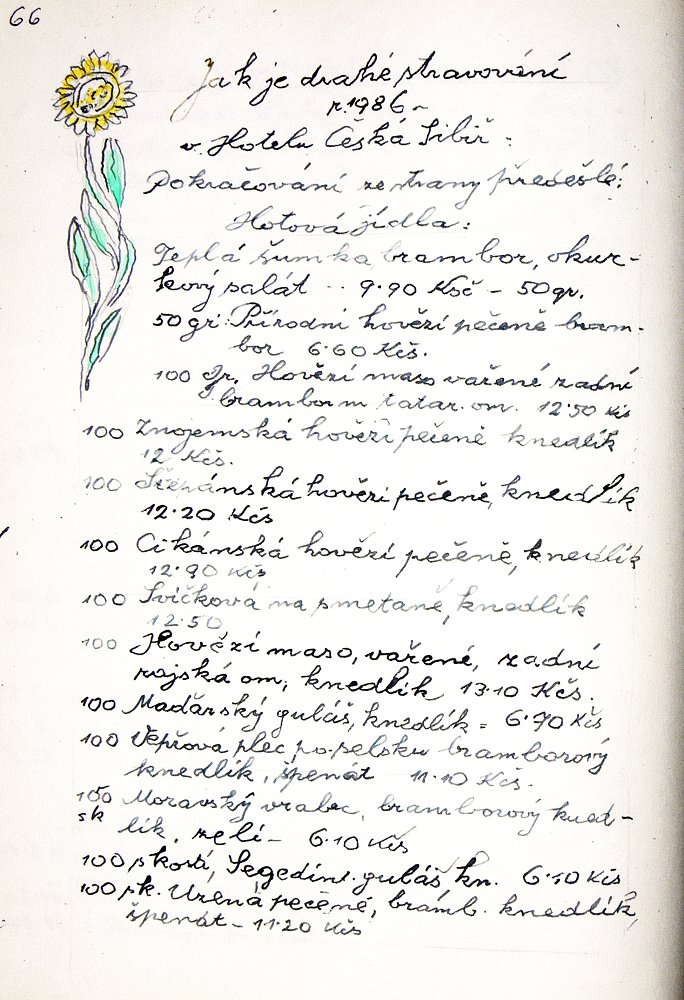 66
Jak je drahé stravování
r. 1986 -
v Hotelu Česká Sibiř:
Pokračování ze strany předešlé:
Hotová jídla:
Teplá šumka brambor, okur-
kový salát -- 9.90 Kčs - 50 gr.
50 gr. Přírodní hovězí pečeně bram-
bor 6.60 Kčs.
100 gr. Hovězí maso vařené zadní
brambor m tatar. om. 12.50 Kčs
100 Znojemská hovězí pečeně knedlík
12 Kčs.
100 Štěpánská hovězí pečeně, knedlík
12.20 Kčs
100 Cikánská hovězí pečeně, knedlík
12.90 Kčs
100 Svíčková na smetaně, knedlík
12.50
100 Hovězí maso, vařené, zadní
rajská om, knedlík 13.10 Kčs.
100 Maďarský guláš, knedlík = 6.70 Kčs
100 Vepřová plec po selsku bramborový
knedlík, špenát 11.10 Kčs.
100 Moravský vrabec, bramborový kned-
sk lík, zelí - 6.10 Kčs
100 s kostí, Segedins. guláš, kn. Kčs
100 sk. Uzená pečeně, bramb. knedlík,
špenát - 11.20 Kčs